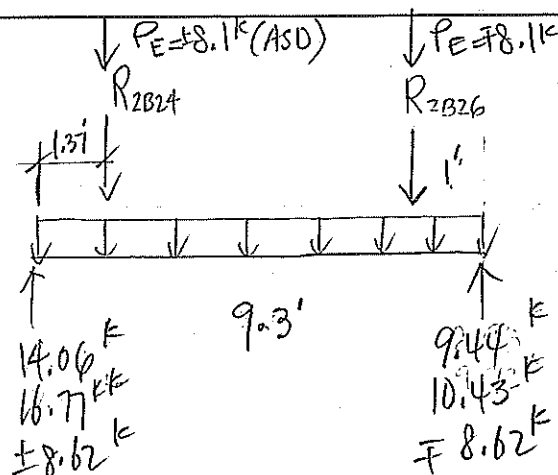 P_E=±8.1ᵏ(ASD)
P_E=∓8.1ᵏ
R_2B24
R_2B26
1.37'
1'
9.3'
14.06ᵏ
16.77ᵏ
±8.62ᵏ
9.44ᵏ
10.43ᵏ
∓8.62ᵏ